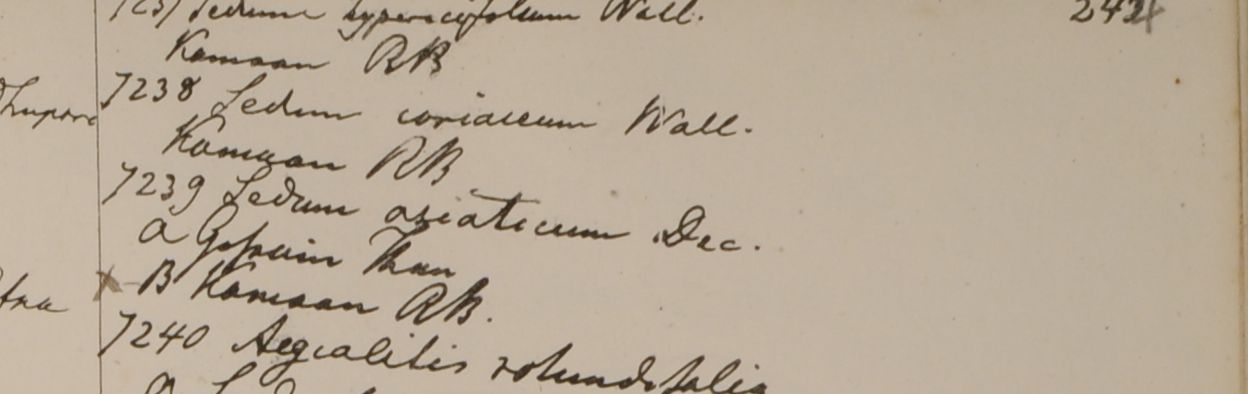 7237 Sedum hypericifolium Wall. 242
Kamaon RB
7238 Sedum coriaceum Wall.
Kamaon RB
7239 Sedum asiaticum Dec.
a Gossain Than
B Kamaon RB.
7240 Aegialitis rotundifolia